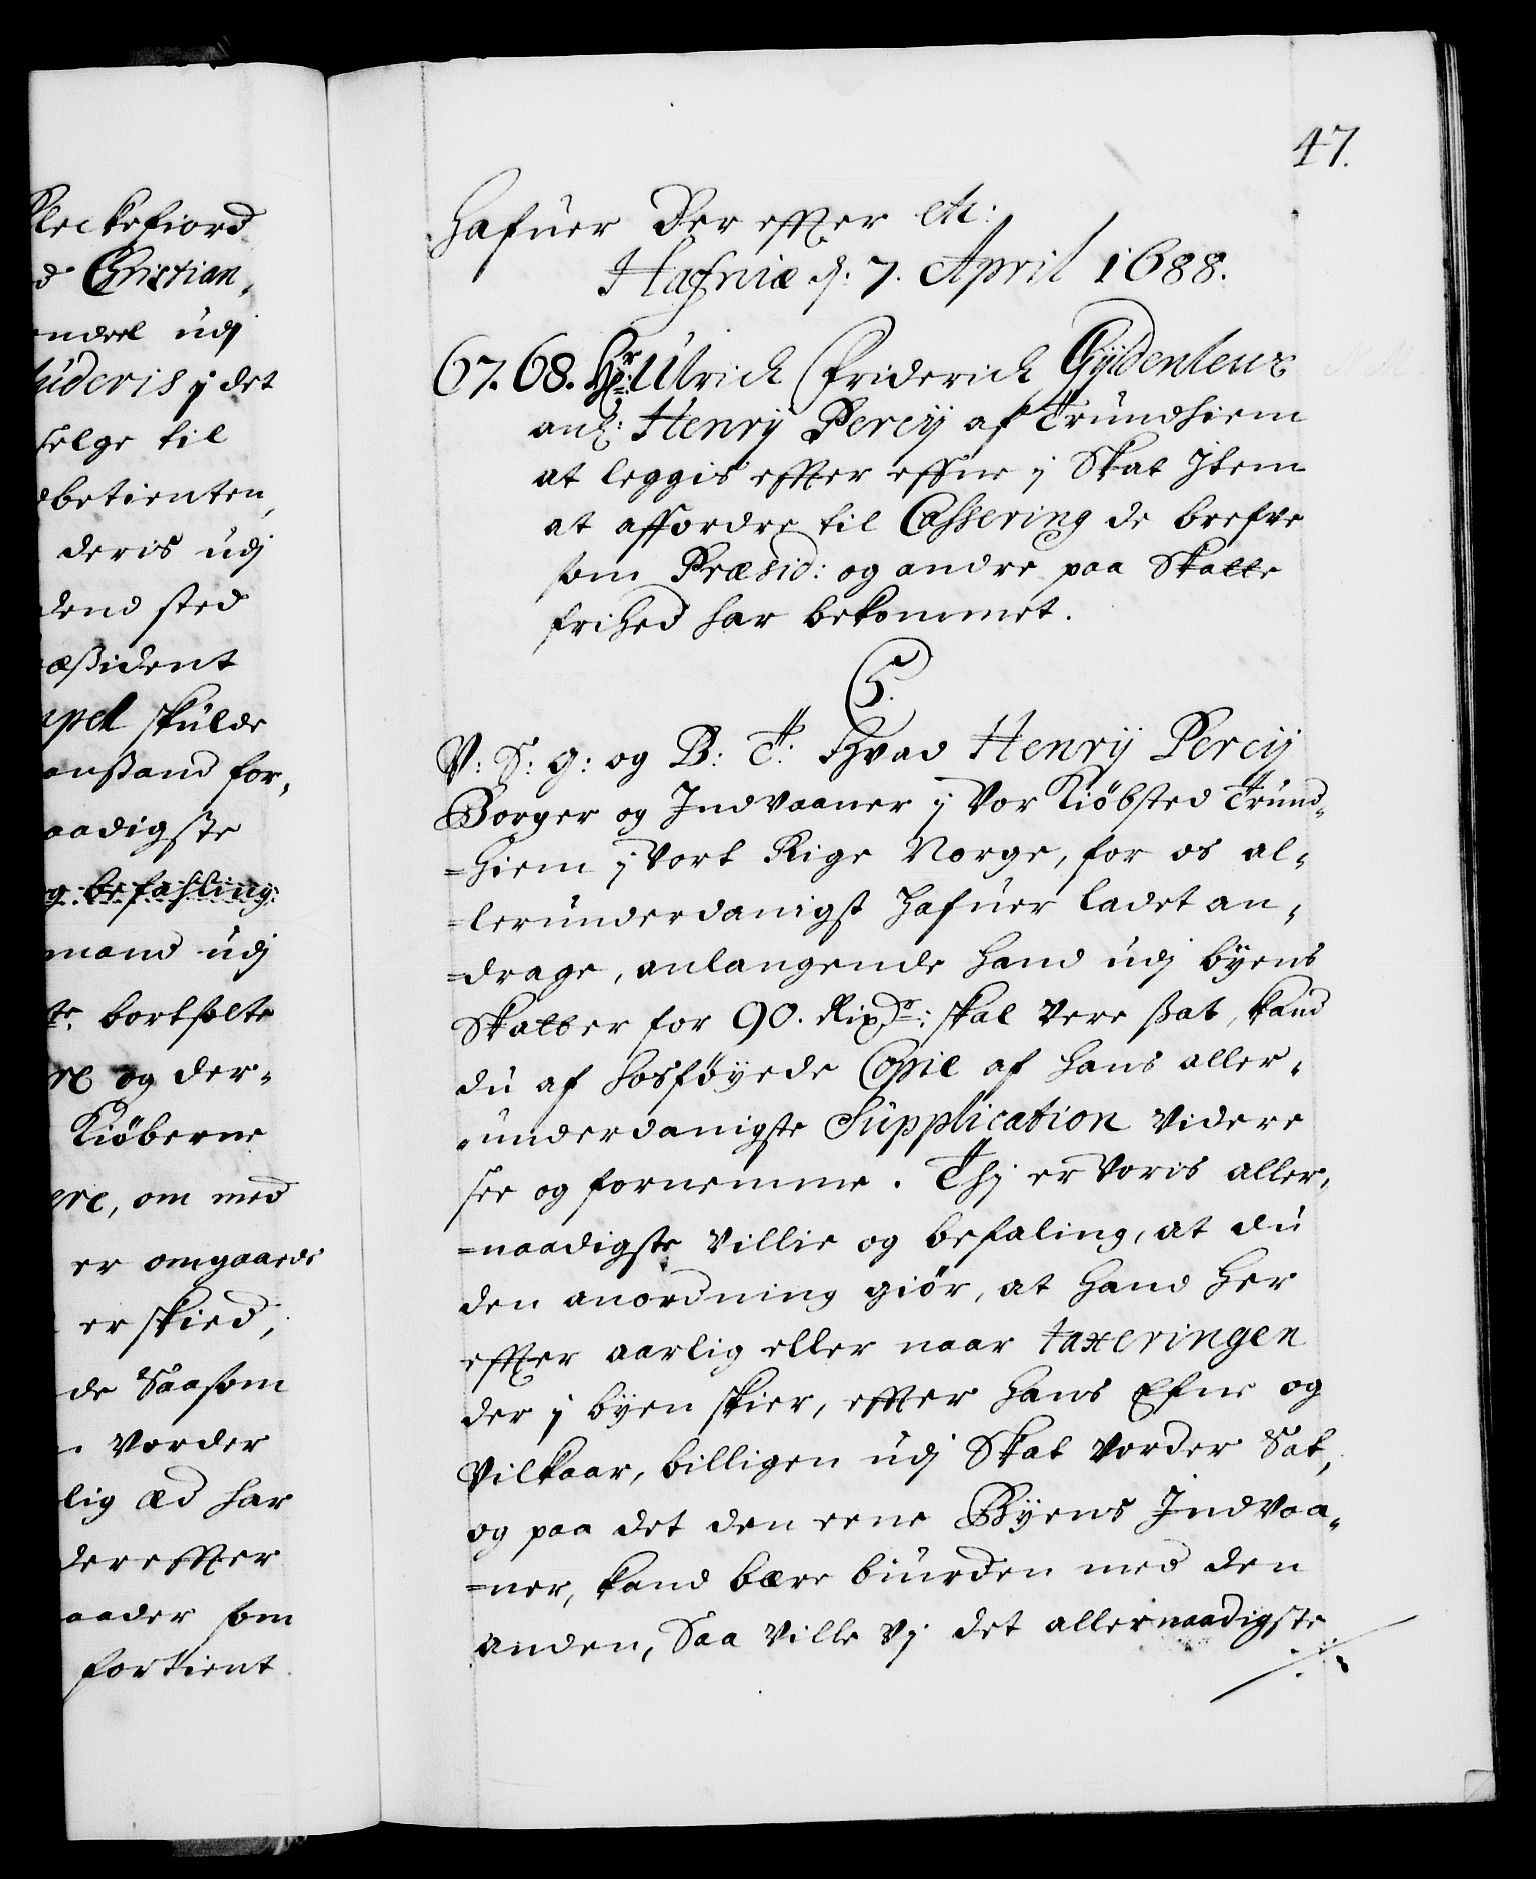 47.
Hafuer Der effter etc:
Hafniæ d: 7. April 1688.
67. 68. Hr: Ulrich Friderich Gyldenleuе
anl: Henrÿ Percÿ af Trundhiem
at leggis effter effne j Skat Item
at affordre til Cassering de brefve
som Præsid: og andre paa Skatte
frihed har bekommet.
C5.
V: S: G: og B: T: Hvad Henrÿ Percÿ
Borger og Indvaaner j Vor Kiöbsted Trund¬
=hiem j Vort Rige Norge, for os al¬
=lerunderdanigst hafuer ladet an¬
=drage, anlangende hand udj byens
Skatter for 90. Rixdr: skal Vere ßat, kand
du af hosföyede Copie af hans aller¬
=underdanigste Supplication Videre
see og fornemme. Thj er Voris aller¬
=naadigste Villie og befaling, at du
den anordning giör, at hand her
effter aarlig eller naar taxeringen
der j byen skier, effter hans Efne og
Vilkaar, billigen udj Skat Vorder Sat,
og paa det den eene Byens Indvaa¬
=ner, kand bære biurden med den
anden, Saa Ville Vj det allernaadigste
./.
Fleckefiord
d Christian,
endeel udj
luderis j det
selge til
dbetienten,
deris udj
dend sted
æßident
apel skulde
anstand for¬
aadigste
g befahling:
mand udj
te bortsolte
re og der¬
Kiöberne
ere, om med
er omgaaeds
er skied,
de Saasom
Vorder
lig æd har
der effter
aader som
fortient